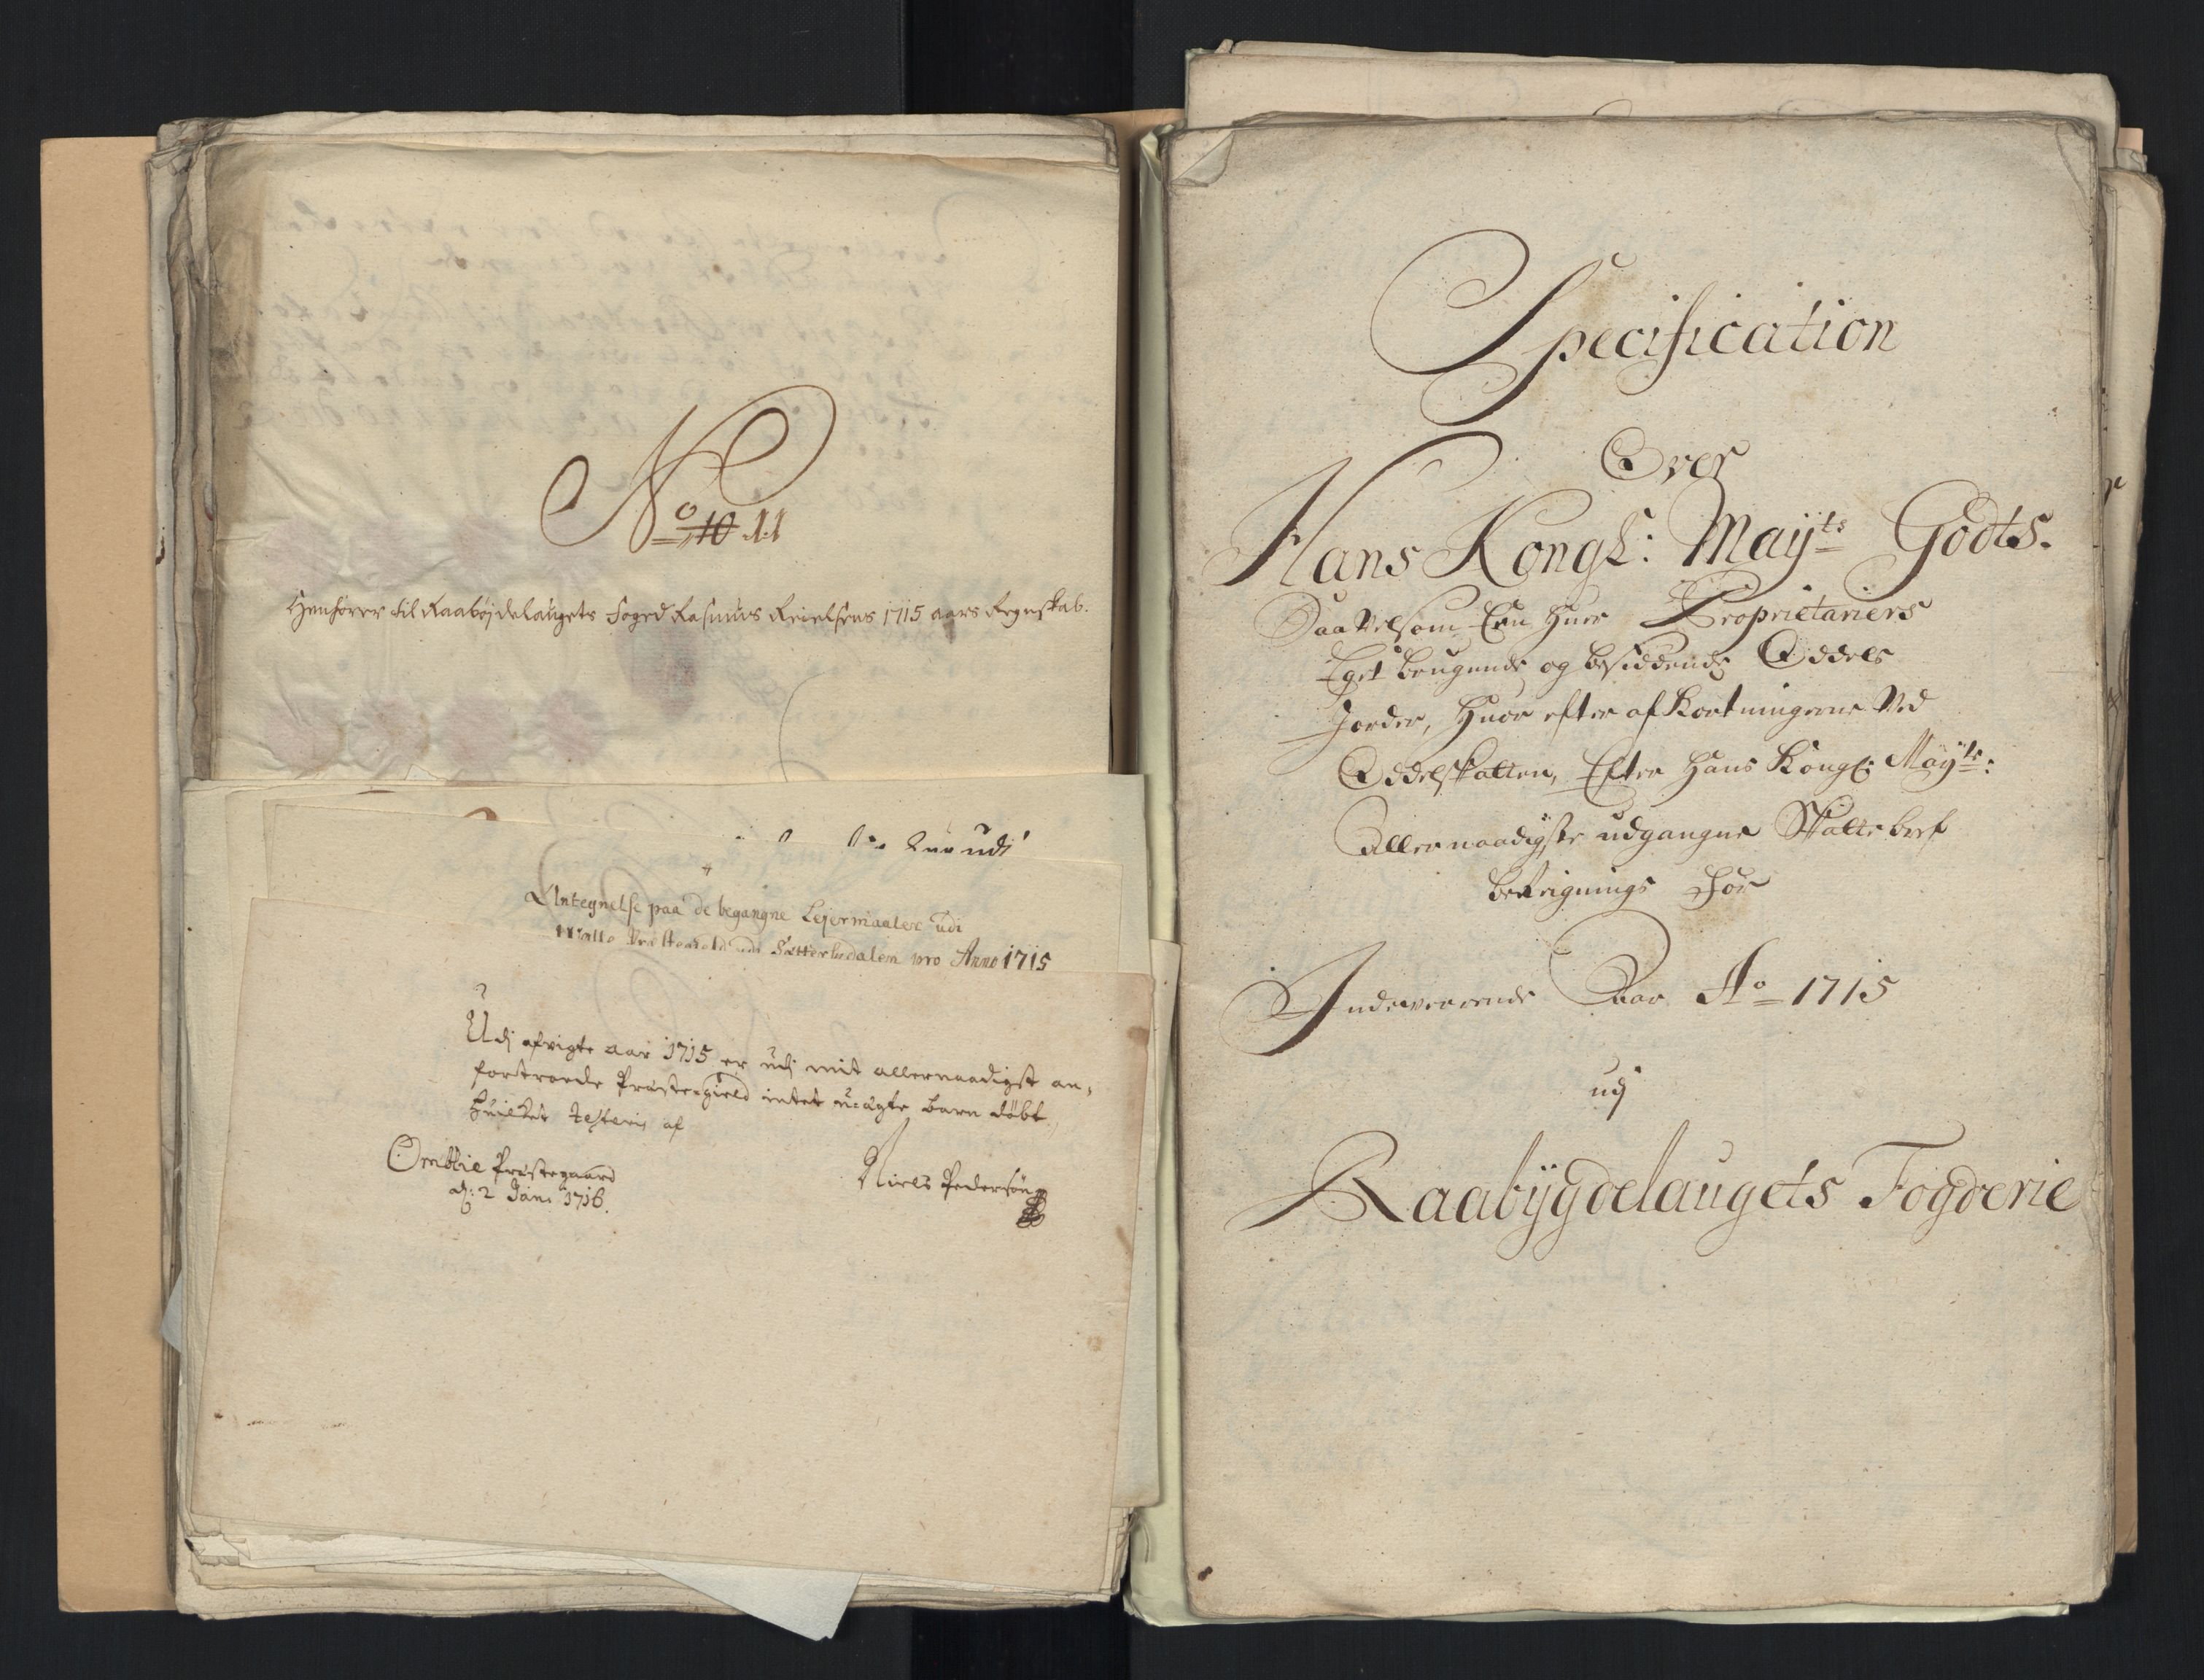 No 10 11
Henhörer til Raabøjdelaugets Foged Rasmus Reielsens 1715 aars Regnskab.
udi
Antegnelse paa de begangne Lejermaaler udi
udi Sætterbedalem pro Anno 1715
Udj afvigte aar 1715 er udj mit allernaadigst an-
fortroede Præstegield intet uægte barn döbt,
huilket testeris af
Omblie Præstegaard
dj: 2 Janj 1716.
Niels Pedersön
Specification
Over
Hans Kongl: Mayts Godts.
Saavelsom Een huer Proprietariers
Eget brugende og besiddende Oddels
Jorder, huor efter afkortningerne ved
Oddelskatten, Efter Hans Kongl: Mayts:
allernaadigste udgangne Skatte bref
bereignings for
Indeværende Aar Ao 1715
udj
Raabÿgdelaugets Fogderie